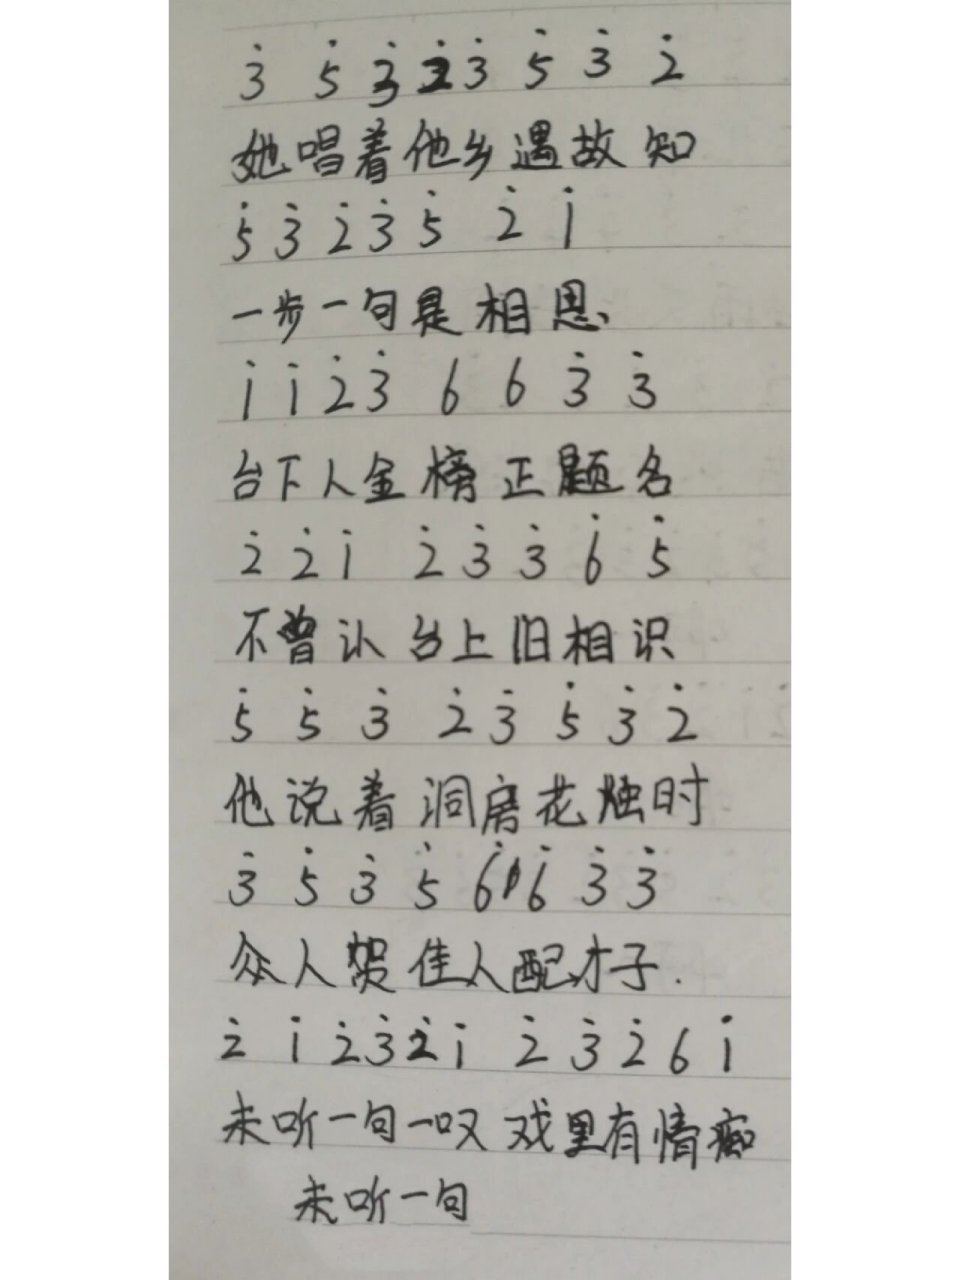 3̇ 5̇ 3̇ 2̇ 3̇ 5̇ 3̇ 2̇
她唱着他乡遇故知
5̇ 3̇ 2̇ 3̇ 5̇ 2̇ 1̇
一步一句是相思
1̇ 1̇ 2̇ 3̇ 6 6 3̇ 3̇
台下人金榜正题名
2̇ 2̇ 1̇ 2̇ 3̇ 3̇ 6̇ 5̇
不曾认台上旧相识
5̇ 5̇ 3̇ 2̇ 3̇ 5̇ 3̇ 2̇
他说着洞房花烛时
3̇ 5̇ 3̇ 5̇ 6̇ 6̇ 3̇ 3̇
众人贺佳人配才子.
2̇ 1̇ 2̇ 3̇ 2̇ 1̇ 2̇ 3̇ 2̇ 6 1̇
未听一句一叹戏里有情痴
未听一句